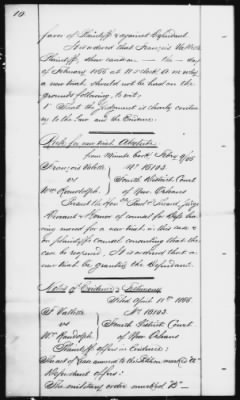 10.
favor of Plaintiff & against Defendant
It is ordered that François Vallette
Plaintiff, show cause on — the — day
of February 1866 at 11 o'clock A.M. why
a new trial should not be had on the
grounds following, to wit:
1st That the judgment is clearly contrary
to the law and the Evidence.
Rule for new trial Absolute
from Minute book, Febry 9/66
François Vallette No 16103.
vs Fourth District Court
Wm Randolph. of New Orleans
Present the Hon
of counsel for Deft having
moved for a new trial in this case &
on plaintiff's counsel consenting that the
case be reopened. It is ordered that a
new trial be granted the Defendant.
Notes of Evidence & Testimony
Filed April 11th 1866
F Vallette No 16103
vs Fourth District Court
Wm Randolph of New Orleans
Plaintiff offers in Evidence:
The act of Lease annexed to the Petition marked "A"
Defendant offers:
The military order marked "B"